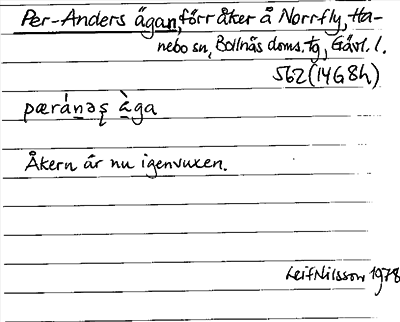 Per-Anders ägan, förr åker å Norrfly, Ha-
nebo sn, Bollnäs doms. tg, Gävl. l.
562 (14G8h)
pæránəș àga
Åkern är nu igenvuxen.
Leif Nilsson 1978